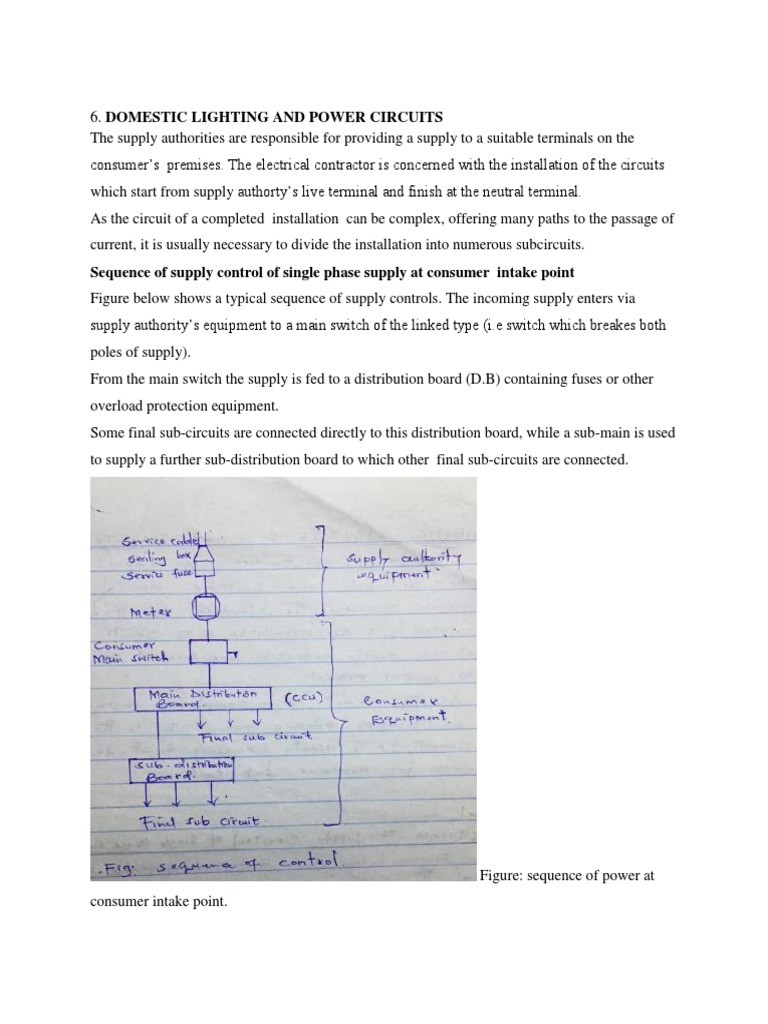 6. DOMESTIC LIGHTING AND POWER CIRCUITS
The supply authorities are responsible for providing a supply to a suitable terminals on the
consumer's premises. The electrical contractor is concerned with the installation of the circuits
which start from supply authorty's live terminal and finish at the neutral terminal.
As the circuit of a completed installation can be complex, offering many paths to the passage of
current, it is usually necessary to divide the installation into numerous subcircuits.
Sequence of supply control of single phase supply at consumer intake point
Figure below shows a typical sequence of supply controls. The incoming supply enters via
supply authority's equipment to a main switch of the linked type (i.e switch which breakes both
poles of supply).
From the main switch the supply is fed to a distribution board (D.B) containing fuses or other
overload protection equipment.
Some final sub-circuits are connected directly to this distribution board, while a sub-main is used
to supply a further sub-distribution board to which other final sub-circuits are connected.
Service cable
Sealing box
Service fuse
Supply authority
equipment
Meter
Consumer
Main switch
Main Distribution
Board.
(CCU)
Consumer
Equipment.
Final sub circuit
Sub-distribution
Board.
Final sub circuit.
Fig: sequence of control.
Figure: sequence of power at
consumer intake point.